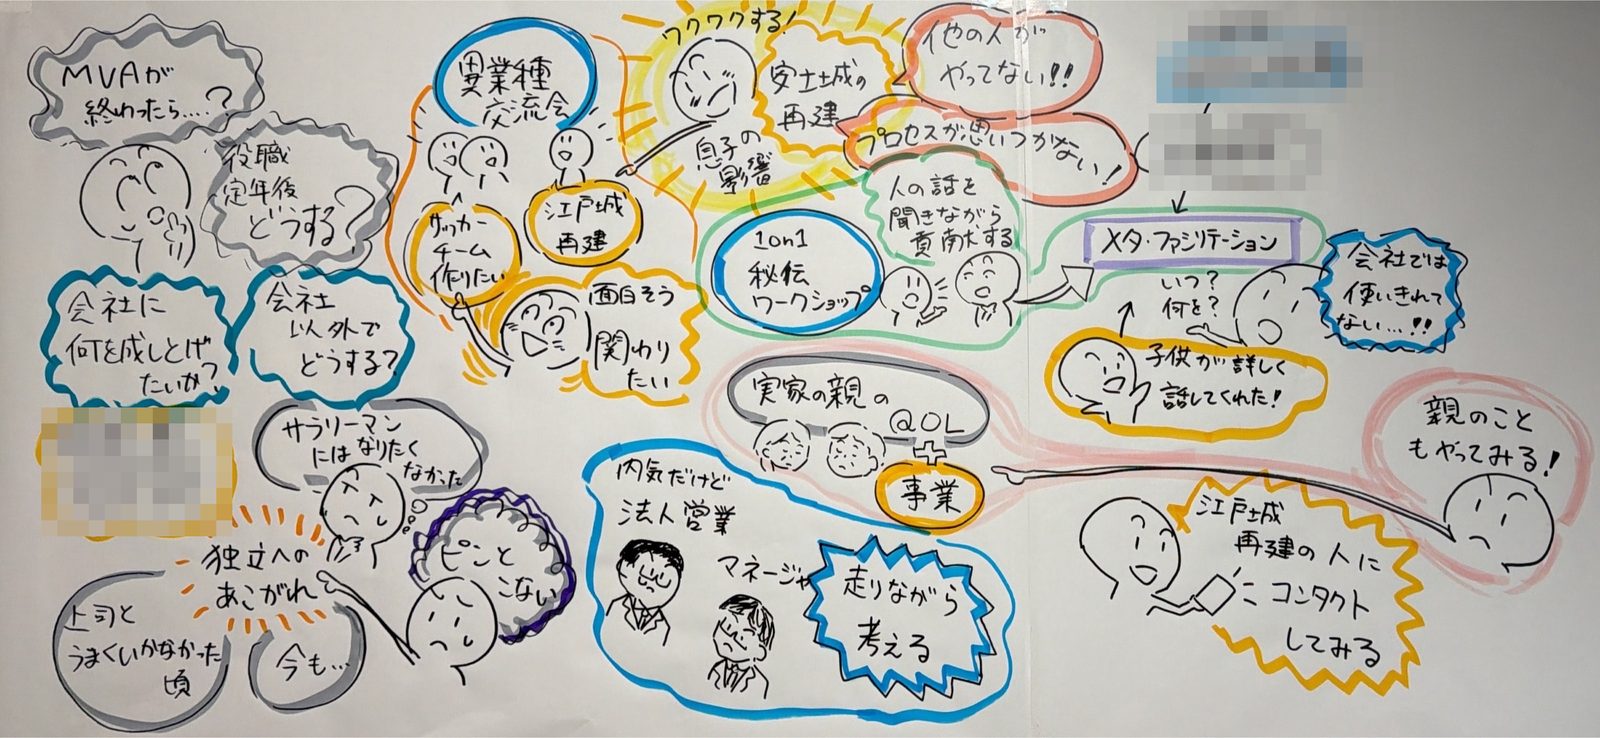 MVAが
終わったら....?
役職
定年後
どうする?
会社に
何を成しとげ
たいか?
会社
以外で
どうする?
サラリーマン
にはなりたく
なかった
独立への
あこがれ
ピンと
こない
上司と
うまくいかなかった
頃
今も...
異業種
交流会
サッカー
チーム
作りたい
江戸城
再建
面白そう
関わり
たい
ワクワクする!
安土城の
再建
息子の
影響
他の人が
やってない!!
プロセスが思いつかない!
人の話を
聞きながら
貢献する
1on1
秘伝
ワークショップ
メタ・ファシリテーション
いつ?
何を?
会社では
使いきれて
ない...!!
子供が詳しく
話してくれた!
実家の親の
@OL
+
事業
親のこと
もやってみる!
内気だけど
法人営業
マネージャ
走りながら
考える
江戸城
再建の人に
コンタクト
してみる